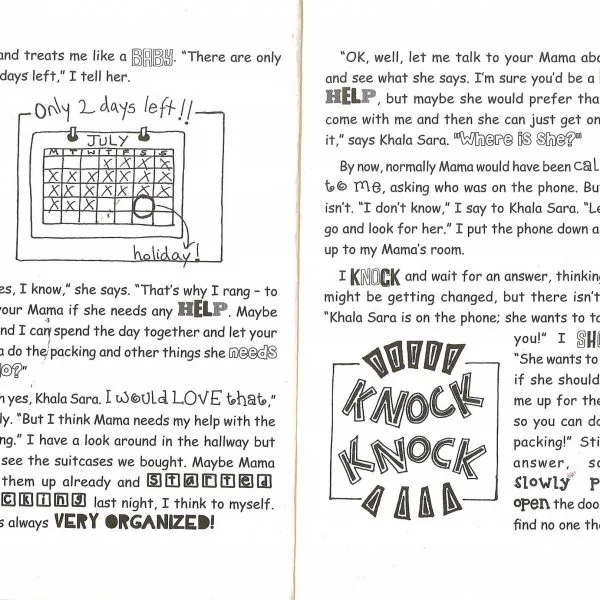 and treats me like a BABY. "There are only
days left," I tell her.
Only 2 days left!!
JULY
M T W T F S S
X X X X
X X X X X X X
X X X X X X X
X X X
holiday!
es, I know," she says. "That's why I rang – to
your Mama if she needs any HELP. Maybe
nd I can spend the day together and let your
a do the packing and other things she needs
o?"
h yes, Khala Sara. I would LOVE that,"
ly. "But I think Mama needs my help with the
ng." I have a look around in the hallway but
see the suitcases we bought. Maybe Mama
them up already and started
cking last night, I think to myself.
s always VERY ORGANIZED!
"OK, well, let me talk to your Mama abo
and see what she says. I'm sure you'd be a
HELP, but maybe she would prefer tha
come with me and then she can just get on
it," says Khala Sara. "Where is she?"
By now, normally Mama would have been cal
to me, asking who was on the phone. But
isn't. "I don't know," I say to Khala Sara. "Le
go and look for her." I put the phone down a
up to my Mama's room.
I KNOCK and wait for an answer, thinking
might be getting changed, but there isn't
"Khala Sara is on the phone; she wants to ta
KNOCK
KNOCK
you!" I SHO
"She wants to
if she should
me up for the
so you can do
packing!" Sti
answer, so
slowly p
open the doo
find no one th